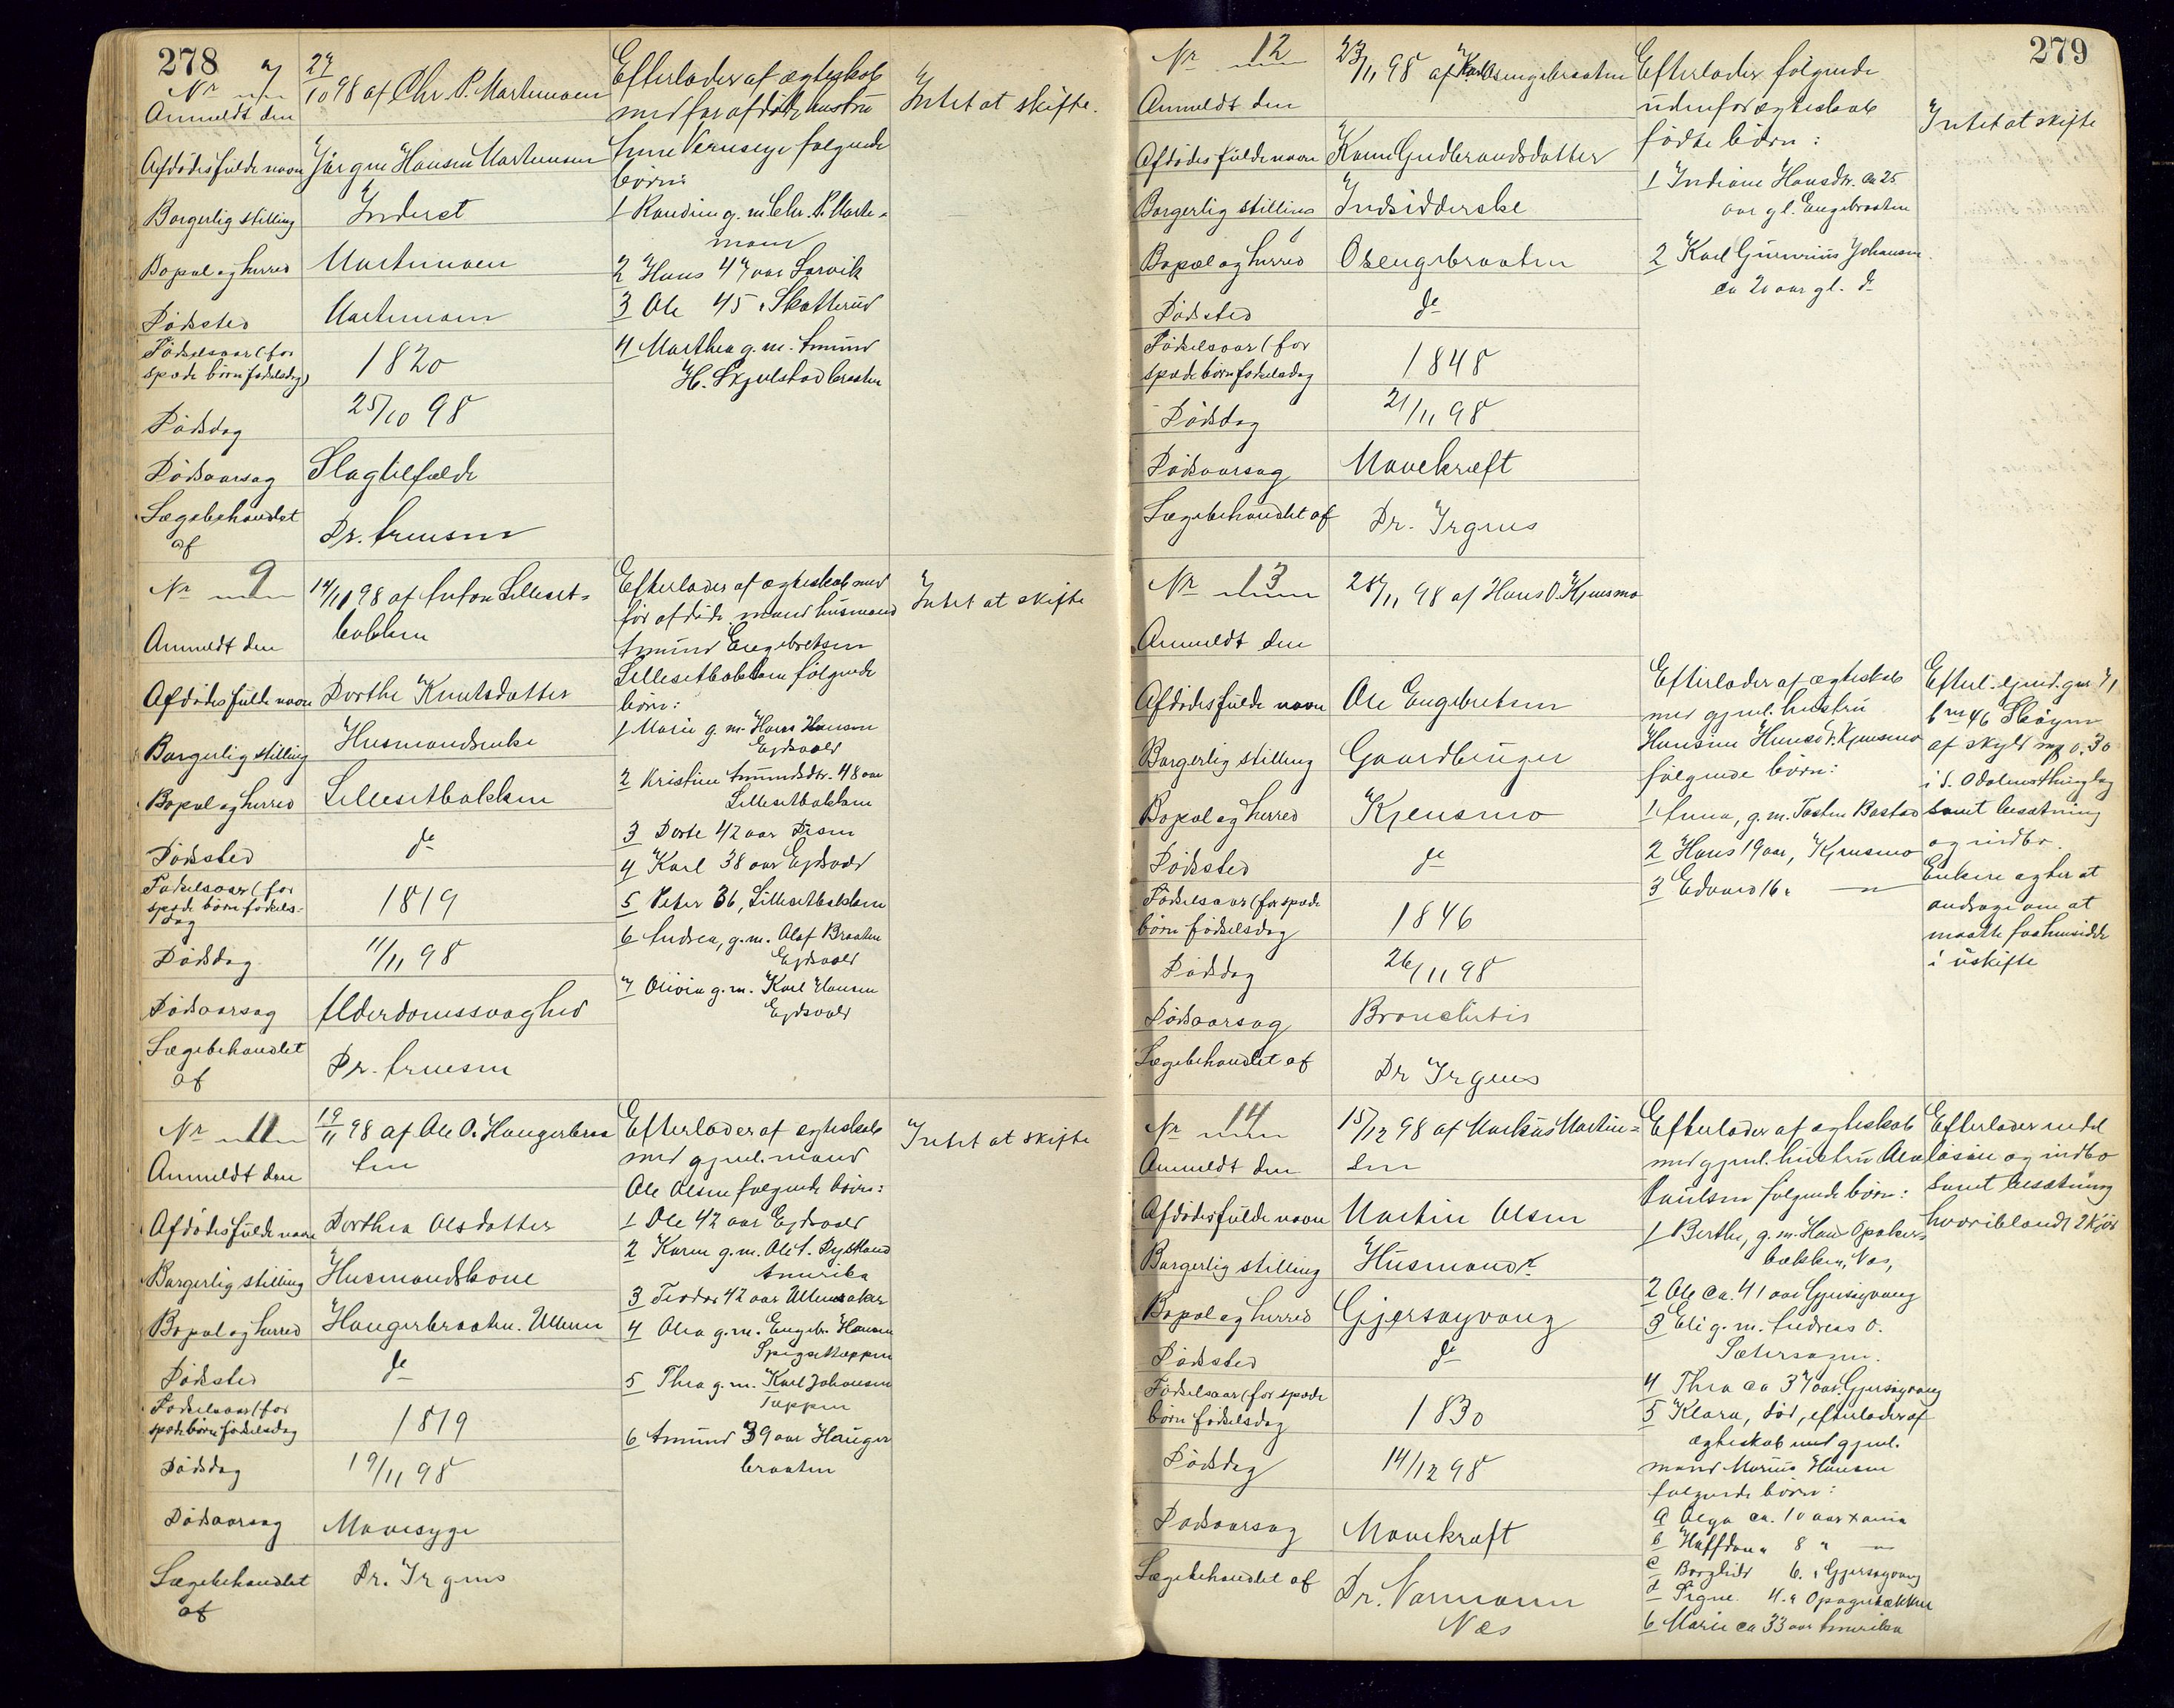 278
Nr 7
Anmeldt den
27/10 98 af Chr. P. Martemoen
Afdødes fulde navn Jørgen Hansen Martemoen
Borgerlig stilling Inderst
Bopæl og herred Martemoen
Dødssted Martemoen
Fødselsaar (for
spæde børn fødselsdag) 1820
Dødsdag 25/10 98
Dødsaarsag Slagtilfælde
Lægebehandlet
af Dr. Arnesen
Efterlader af ægteskab
med før afdøde hustru
Anne følgende
børn:
1 Randine g. m. Chr. P. Marte-
moen
2 Hans 47 aar Larvik
3 Ole 45 " Skotterud
4 Marthea g. m. Amund
H. Skjelstadbraaten
Intet at skifte.
Nr 9
Anmeldt den
14/11 98 af Anton Lilleset-
bakken
Afdødes fulde navn Dorthe Knutsdatter
Borgerlig stilling Husmandsenke
Bopæl og herred Lillesetbakken
Dødssted do
Fødselsaar (for
spæde børn fødsels-
dag 1819
Dødsdag 11/11 98
Dødsaarsag Alderdomssvaghed
Lægebehandlet
af Dr. Arnesen
Efterlader af ægteskab med
før afdøde mand husmand
Amund Engebretsen
Lillesetbakken følgende
børn:
1 Marie g. m. Hans Hansen
Ejdsvold
2 Kristine Amundsdr. 48 aar
Lillesetbakken
3 Dorte 42 aar
4 Karl 38 aar Ejdsvold
5 Peter 36, Lillesetbakken
6 Andrea, g. m. Olaf Braaten
Ejdsvold
7 Olivia g. m. Karl Hansen
Ejdsvold
Intet at skifte
Nr 11
Anmeldt den
19/11 98 af Ole O. Haugerbraa
ten
Afdødes fulde navn Dorthea Olsdatter
Borgerlig stilling Husmandskone
Bopæl og herred Haugerbraaten. Ullern
Dødssted do
Fødselsaar (for
spæde børn fødselsdag 1819
Dødsdag 19/11 98
Dødsaarsag Mavesyge
Lægebehandlet
af Dr. Irgens
Efterlader af ægteskab
med gjenl. mand
Ole Olsen følgende børn:
1 Ole 42 aar Ejdsvold
2 Karen g. m. Ole
Amerika
3 Teodor 42 aar Ullensaker
4 Olea g. m. Engebr. Hansen
5 Thea g. m. Karl Johansen
Tappen
6 Amund 39 aar Hauger
braaten
Intet at skifte
279
Nr 12
Anmeldt den
23/11 98 af Karl Osengebraaten
Afdødes fulde navn Karen Gudbrandsdatter
Borgerlig stilling Indsidderske
Bopæl og herred Osengebraaten
Dødssted do
Fødselsaar (for
spæde børn fødselsdag 1848
Dødsdag 21/11 98
Dødsaarsag Mavekræft
Lægebehandlet af Dr. Irgens
Efterlader følgende
udenfor ægteskab
fødte børn:
1 Indiane Hansdr. ca 25
aar gl. Engebraaten
2 Karl Gunerius Johansen
ca 20 aar gl. do
Intet at skifte
Nr 13
Anmeldt den
28/11 98 af Hans O. Kjensmo
Afdødes fulde navn Ole Engebretsen
Borgerlig stilling Gaardbruger
Bopæl og herred Kjensmo
Dødssted do
Fødselsaar (for spæde
børn fødselsdag 1846
Dødsdag 26/11 98
Dødsaarsag Bronchitis
Lægebehandlet af Dr Irgens
Efterlader af ægteskab
med gjenl. hustru
Hansine Hansdr. Kjensmo
følgende børn:
1 Anna, g. m. Rastad
2 Hans 19 aar, Kjensmo
3 Edvard 16 "
Efterl. ejend. gnr 71
bnr 46 Skogen
af skyld mp 0.30
i S. Odalens thinglag
samt besætning
og indbo.
Enken agter at
andrage om at
maatte faa hensidde
i uskifte
Nr 14
Anmeldt den
15/12 98 af Markus Martin-
sen
Afdødes fulde navn Martin Olsen
Borgerlig stilling Husmand
Bopæl og herred Gjersøyvang
Dødssted do
Fødselsaar (for spæde
børn fødselsdag 1830
Dødsdag 14/12 98
Dødsaarsag Mavekræft
Lægebehandlet af Dr. Normann
Næs
Efterlader af ægteskab
med gjenl. hustru Olea
Paulsen følgende børn:
1 Berthe, g. m. Hans Opaker-
bækken, Næs,
2 Ole ca. 41 aar Gjersøyvang
3 Eli g. m. Andreas O.
Sætersagen.
4 Thea ca 37 aar Gjersøyvang
5 Klara, død, efterlader af
ægteskab med gjenl.
mand Marius Hansen
følgende børn:
a Olga ca. 10 aar Xania
b Haffdan " 8 "
c Borghild 6. " Gjersøyvang
d Signe 4. "
6 Marie ca 33 aar Amerika
Efterlader endel
løsøre og indbo
samt besætning
hvoriblandt 2 kjør